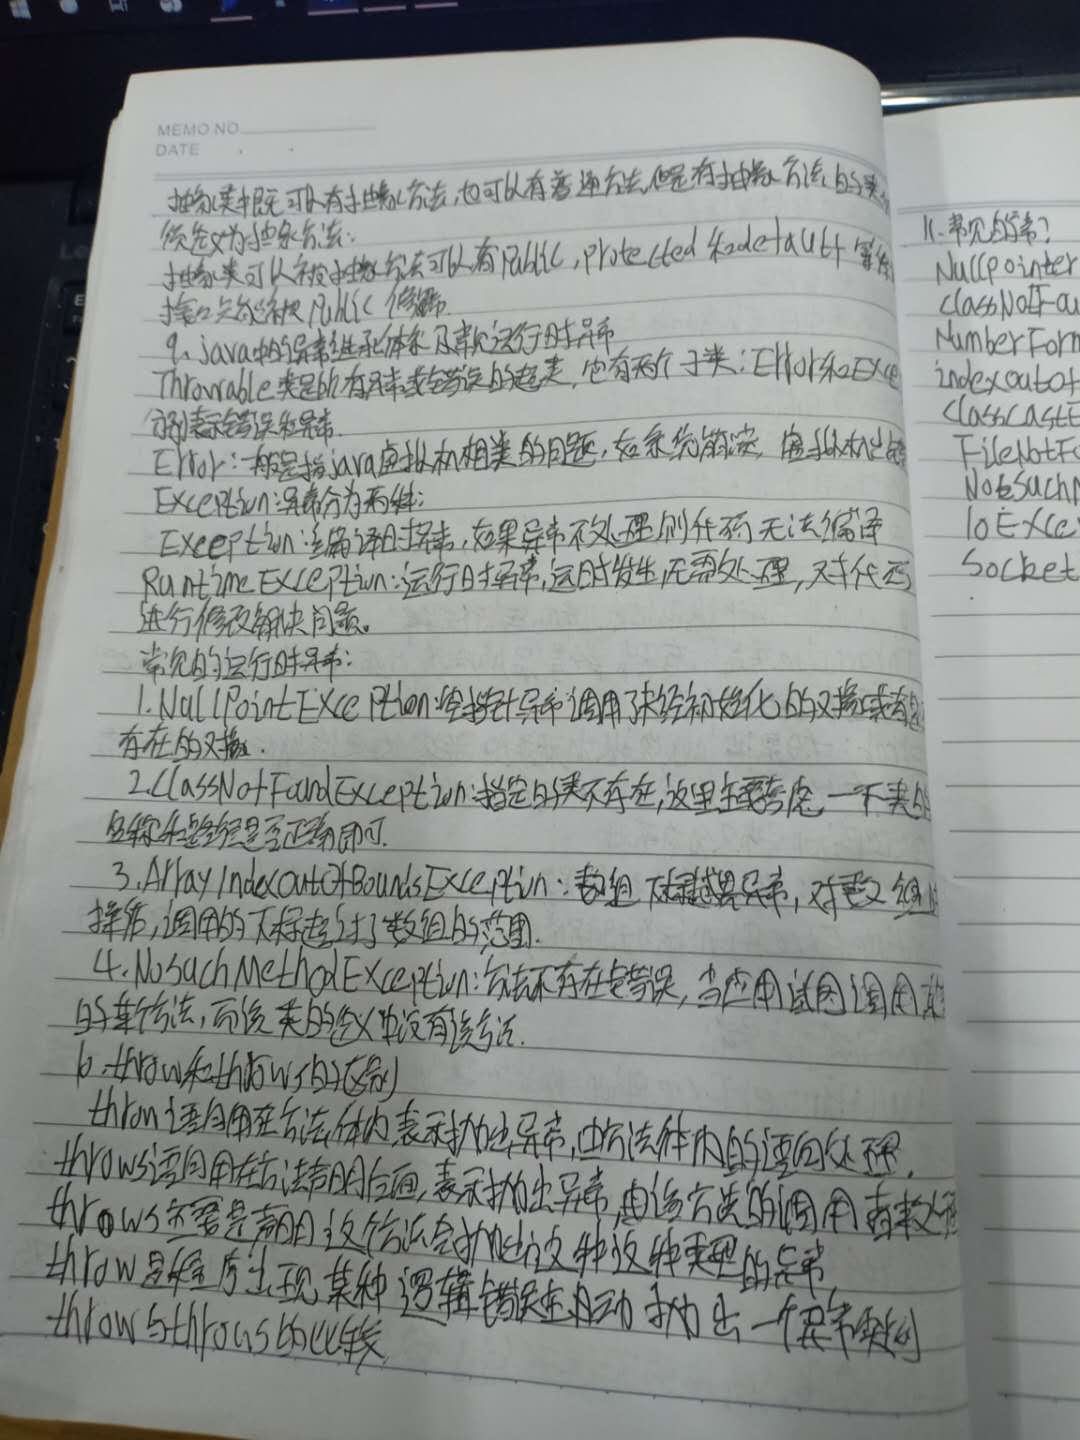 MEMO NO.
DATE
抽象类中既可以有抽象方法,也可以有普通方法,但是有抽象方法的类
须定义为抽象方法:
抽象类可以被抽象方法可以有Public,protected和default等
接口只能被Public修饰.
9、java中的异常继承体系及常见运行时异常
Throwable类是所有异常或错误的超类,它有两个子类:Error和Exce
分别表示错误和异常.
Error:一般是指java虚拟机相关的问题,如系统崩溃,虚拟机出错
Exception:异常分为两种:
Exception:编译时异常,如果异常不处理则代码无法编译
RuntimeException:运行时异常,运时发生,无需处理,对代码
进行修改解决问题。
常见的运行时异常:
1.NullPointException:空指针异常调用了未经初始化的对象或者是
存在的对象.
2.ClassNotFoundException:指定的类不存在,这里主要考虑一下类的
名称和路径是否正确即可.
3.ArrayIndexoutOfBoundsException:数组下标越界异常,对数组
操作,调用的下标超过了数组的范围.
4.NosuchMethodException:方法不存在错误,当应用试图调用某
的某个方法,而该类的定义中没有该方法.
10.throw和throws的区别
thron语句用在方法体内表示抛出异常,由方法体内的语句处理.
throws语句用在方法声明后面,表示抛出异常,由该方法的调用者来处理
throws主要是声明这个方法会抛出这种这种类型的异常
throw是程序出现某种逻辑错误主动抛出一个异常实例
throw与throus的比较
11.常见的异常?
Nullpointer
classNotFou
NumberForm
indexoutof
ClassCastE
FileNotFo
NoSuchM
IoExce
Socket